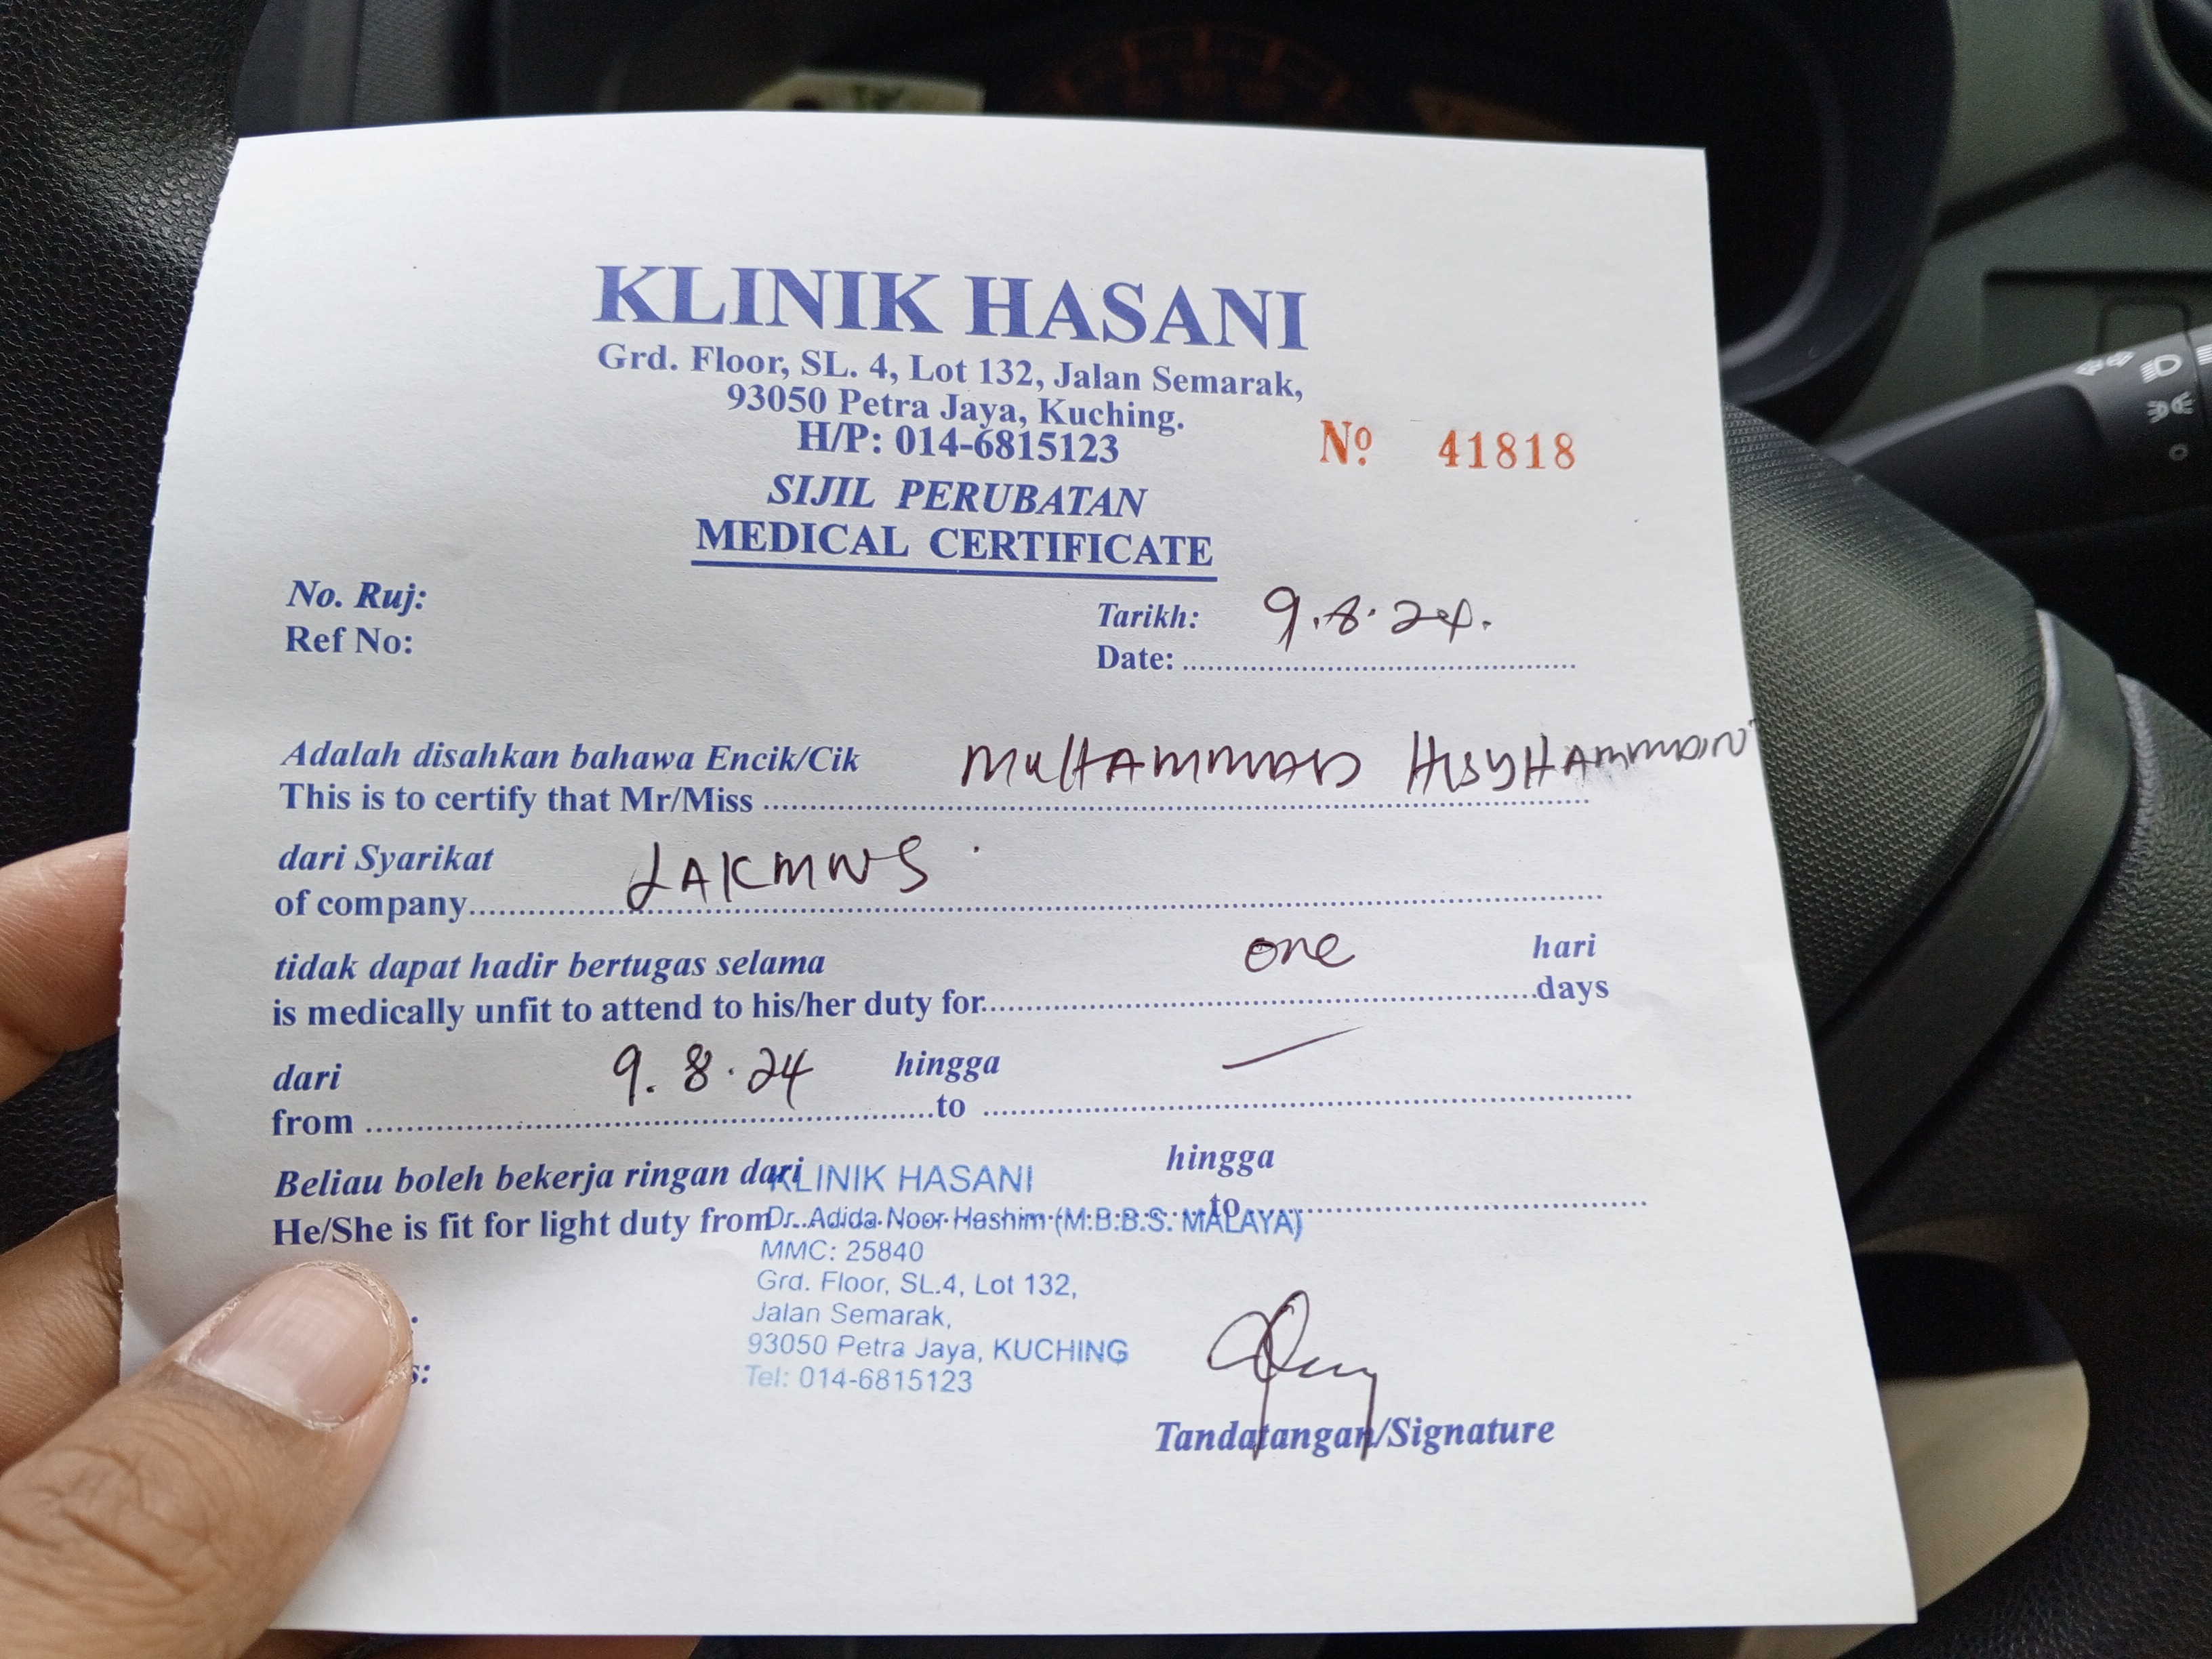 KLINIK HASANI
Grd. Floor, SL. 4, Lot 132, Jalan Semarak,
93050 Petra Jaya, Kuching.
H/P: 014-6815123
Nº 41818
SIJIL PERUBATAN
MEDICAL CERTIFICATE
No. Ruj:
Ref No:
Tarikh: 9.8.24.
Date:
Adalah disahkan bahawa Encik/Cik MUHAMMAD
This is to certify that Mr/Miss
dari Syarikat LAKMNS
of company
tidak dapat hadir bertugas selama one hari
is medically unfit to attend to his/her duty for days
dari 9.8.24 hingga —
from to
Beliau boleh bekerja ringan dari hingga
He/She is fit for light duty from to
KLINIK HASANI
Dr. Adida Noor Hashim (M.B.B.S. MALAYA)
MMC: 25840
Grd. Floor, SL.4, Lot 132,
Jalan Semarak,
93050 Petra Jaya, KUCHING
Tel: 014-6815123
Tandatangan/Signature